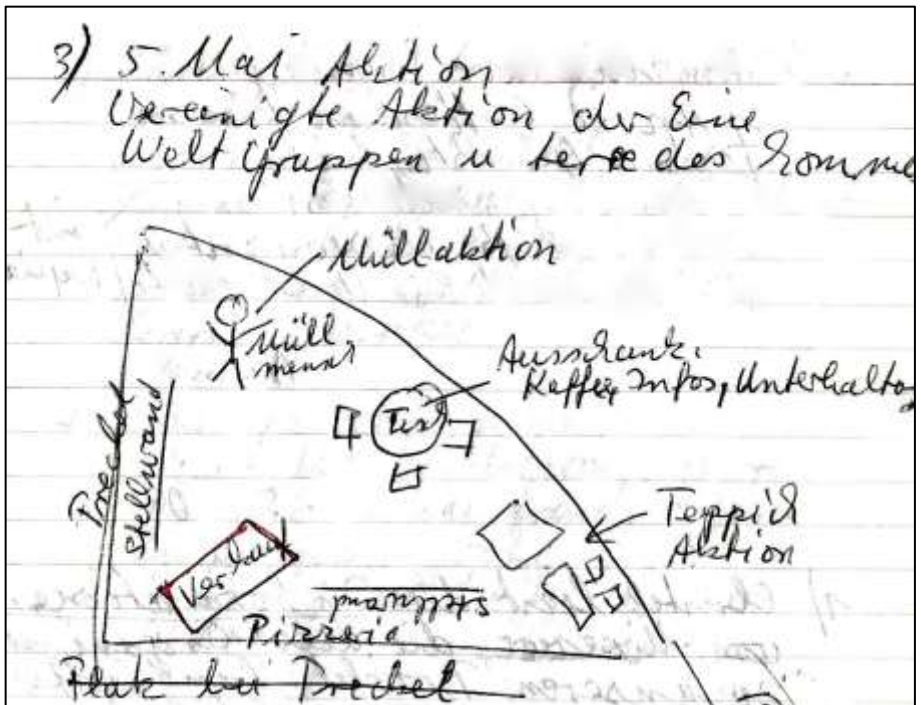 3) 5. Mai Aktion
Vereinigte Aktion der Eine
Welt Gruppen u terre des homme
Müllaktion
Müll
mensch
Ausschank,
Kaffee, Infos, Unterhaltg
Tisch
Stellwand
Teppich
Aktion
Verkauf
Stellwand
Pizzeria
Platz bei Prechel